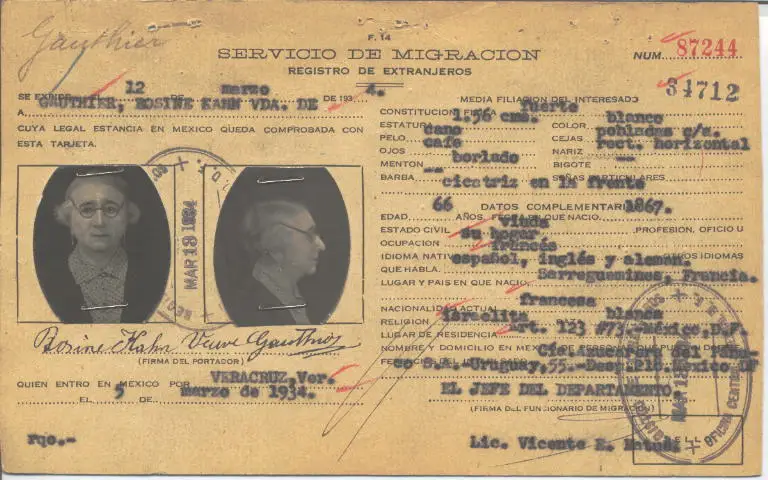 Gauthier
F. 14
SERVICIO DE MIGRACION
REGISTRO DE EXTRANJEROS
NUM. 87244
34712
SE EXPIDE 12 DE marzo DE 1934.
A GAUTHIER, ROSINE KAHN VDA. DE
CUYA LEGAL ESTANCIA EN MEXICO QUEDA COMPROBADA CON
ESTA TARJETA.
MAR 13 1934
Rosine Kahn Veuve Gauthier
(FIRMA DEL PORTADOR)
QUIEN ENTRO EN MEXICO POR VERACRUZ, Ver.
EL 5 DE marzo de 1934.
Fqo.-
MEDIA FILIACION DEL INTERESADO
CONSTITUCION FISICA fuerte
ESTATURA 1.56 cms. COLOR blanco
PELO cano CEJAS pobladas c/s.
OJOS cafe NARIZ rect. horizontal
MENTON borlado BIGOTE --
BARBA -- SEÑAS PARTICULARES
cicatriz en la frente
DATOS COMPLEMENTARIOS
EDAD 66 AÑOS, FECHA EN QUE NACIO 1867.
ESTADO CIVIL viuda PROFESION, OFICIO U
OCUPACION su hogar
IDIOMA NATIVO francés OTROS IDIOMAS
QUE HABLA español, inglés y aleman.
LUGAR Y PAIS EN QUE NACIO Sarreguemines, Francia.
NACIONALIDAD ACTUAL francesa
RELIGION israelita blanca
LUGAR DE RESIDENCIA Art. 123 #73.-México, D.F.
NOMBRE Y DOMICILIO EN MEXICO DE PERSONAS QUE PUEDAN
S.A. Uruguay, 55.- México DF
EL JEFE DEL DEPARTAMENTO
(FIRMA DEL FUNCIONARIO DE MIGRACION)
Lic. Vicente E. Matus.
SELLO
OFICINA CENTRAL